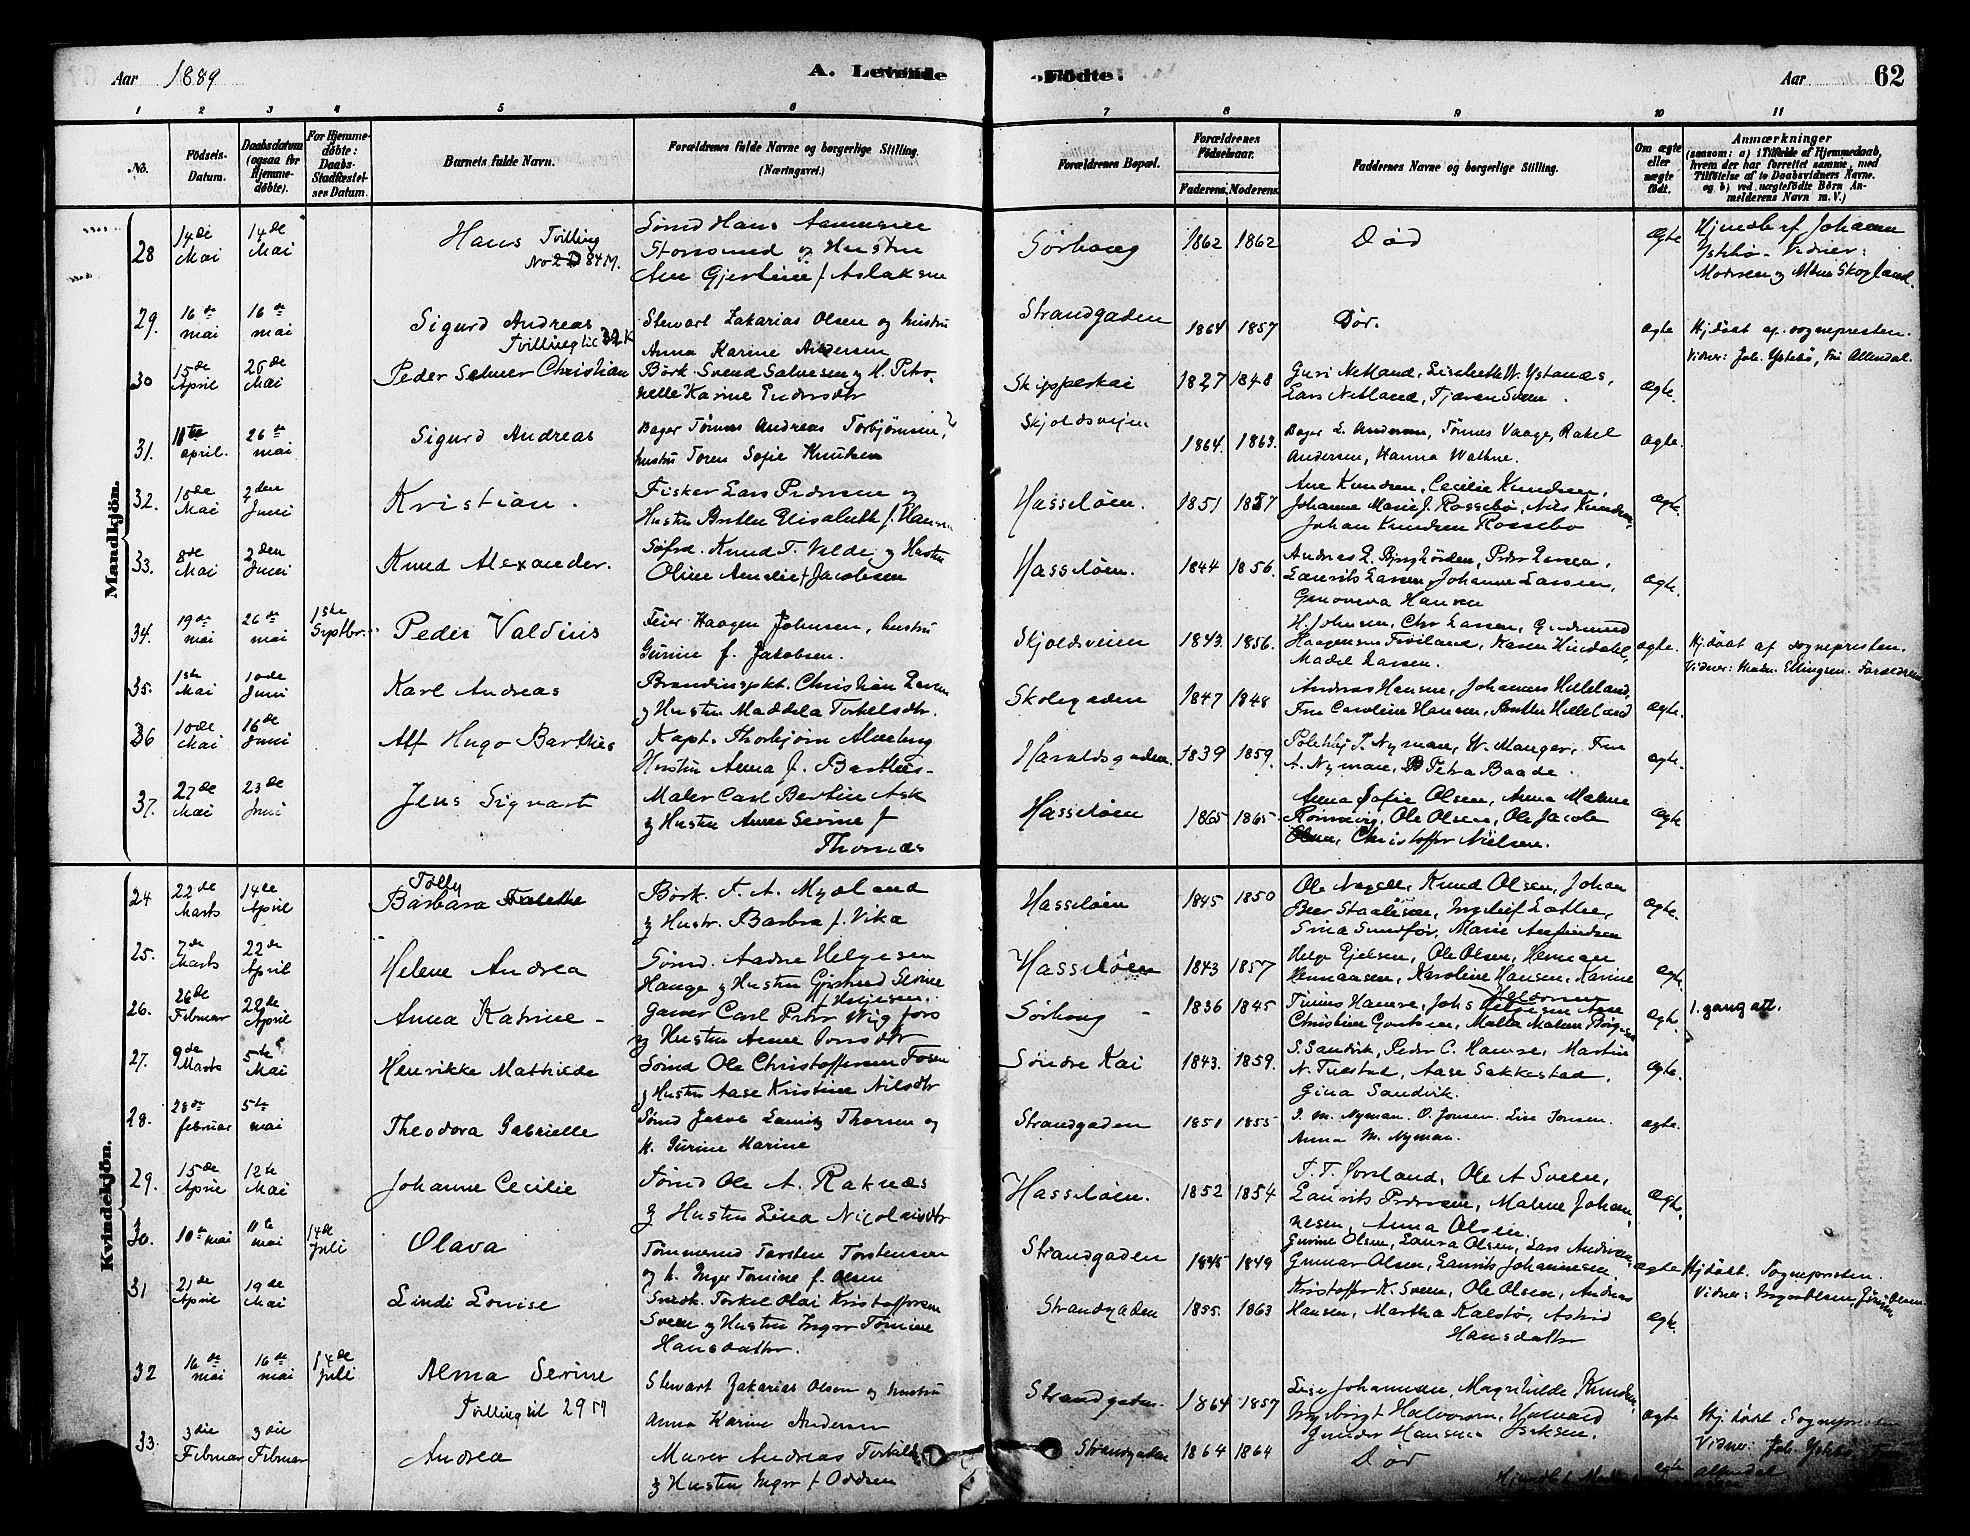 Aar 1889
A. Levende
Födte.
Aar
62
1 2 3 4 5 6 7 8 9 10 11
No.
Födsels-
Datum.
Daabsdatum
(ogsaa for
Hjemme-
döbte).
For Hjemme-
döbte:
Daabs-
Stadfæstel-
ses Datum.
Barnets fulde Navn.
Forældrenes fulde Navne og borgerlige Stilling.
(Næringsvei.)
Forældrenes Bopæl.
Forældrenes
Födselsaar.
Faderens. Moderens.
Faddernes Navne og borgerlige Stilling.
Om ægte
eller
uægte
födt.
Anmærkninger
(saasom: a) i Tilfælde af Hjemmedaab,
hvem der har forrettet samme, med
Tilföielse af to Daabsvidners Navne.
og b) ved uægtefödte Börn An-
melderens Navn m. V.)
Mandkjön.
28 14de Mai 14de Mai
Hans Tvilling
Sømd Hans
og Hustru
Ane Gjertine f. Aslaksen
Sørhaug 1862 1862 Død Ægte
Hjmdb. af Johanna
Ystebø. Vidner:
29. 16de mai 16de mai
Sigurd Andreas
Tvilling til 32 K
Stewart Zakarias Olsen og hustru
Anna Karine Andersen
Strandgaden 1864 1857 Død. ægte
Hj.døbt af sognepresten.
Vidner: Joh. Ystebø, Fru Allendal.
30 15de April 26de Mai
Peder Selmer Christian
Børk. Svend Salvesen og H. Petro-
nelle Karine Endersdtr
Skipperkai 1827 1848
Guri Netland, Lisabeth W. Ystanæs,
Lars Netland, Tjeran Sveen. Ægte.
31. april. 26de mai
Sigurd Andreas
Bager Tønnes Andreas Torbjørnsen,
hustru Toren Sofie Knutsen
Skjoldsveien 1864. 1863.
Bager L. Andersen, Tønnes Vaage, Rakel
Andersen, Hanna Wathne. ægte.
32. 18de Mai 2den Juni
Kristian.
Fisker Lars Pedersen og
Hustru Berthe Elisabeth f. Hansen
Hasseløen. 1851 1857
Ane Knudsen, Cecilie Knudsen,
Johanne Marie J. Rossebø, Nils Knudsen,
Johan Knudsen Rossebø Ægte.
33. 8de Mai 2den Juni
Knud Alexander.
Knud T. Velde og Hustru
Oline Amalie f. Jacobsen
Hasseløen. 1844 1856.
Peder Larsen,
Laurits Larsen, Johanne Larsen,
Genoveva Hansen Ægte.
34. 19de mai 26de mai 1ste Septbr.
Peder Valdius
Feier Haagen Johnsen, hustru
Gurine f. Jakobsen.
Skjoldsveien 1843. 1856.
H. Johnsen, Chr Larsen, Gudmund
Haagensen Frøiland, Karen Hindahl,
Madel Larsen. ægte.
Hj.døbt af sognepresten.
Vidner: Madm. Ellingsen. Forældrene
35. 1ste Mai 10de Juni
Karl Andreas
Brandinspkt. Christian Larsen
og Hustru Maddela Torkelsdtr.
Skolegaden 1847 1848
Andreas Hansen, Johannes Helleland,
Fru Caroline Hansen, Berthe Helleland Ægte.
36 10de Mai 16de Juni
Alf Hugo Barthies
Kapt. Thorbjørn
Hustru Anna f. Barthies-
Haraldsgaden. 1839 1859.
T. Nyman, W. Manger, Fru
A. Nyman, Petra Baade. ægte.
37. 27de Mai 23de Juni
Jens Sigvart
Maler Carl Bertin Ask
og Hustru Anne Serine f
Thomæs
Hasseløen 1865 1865
Anna Sofie Olsen, Anna Malene
Rønnevig, Ole Olsen, Ole Jacob
Olsen, Christoffer Nielsen. Ægte
Kvindekjön.
24 22de Marts 14de April
Tolly
Barbara
Børk. T. A. Myoland
og Hustr. Barbra f. Vika
Hasseløen 1845 1850
Ole Nagell, Knud Olsen, Johan
Beer Staalesen, Ingeleif Lothe,
Sina Sundfør, Marie Ægte.
25. 7de Marts 22de April
Helene Andrea
Sømd. Aadne Helgesen
Hauge og Hustru Gjertrud Serine
f. Helgesen.
Hasseløen 1843 1857
Helge Gjelsen, Ole Olsen, Herman
Hermansen, Karoline Hansen, Karine
Halvorsen Ægte.
26. 26de Februar 28de April
Anna Katrine -
Garver Carl Peter Wigfors
og Hustru Anne Jonsdtr
Sørhaug - 1836 1845
Tinius Hamre, Johs Helgesen Aase
Christine Govertsen, Malla Malene Borgesen Ægte.
1. gang att.
27. 9de Marts 5te Mai
Henrikke Mathilde
Sømd Ole Christoffersen Fosen
og Hustru Aase Kristine Nilsdtr
Søndre Kai 1843. 1859.
S. Sandvik, Peder C. Hamre, Martin
N. Tuastad, Aase Sakkestad,
Gina Sandvik. Ægte.
28. 28de februar 5te mai
Theodora Gabrielle
Sømd Jakob Lauritz Thorsen og
h. Gurine Karine
Strandgaden 1851 1855
J. M. Nyman. O. Jonsen. Lise Jonsen.
Anna M. Nyman. ægte.
29. 15de April 12te Mai
Johanne Cecilie
Sømd Ole A. Raknæs
og Hustru Lina Nicolaisdtr
Hasseløen. 1852 1854
T. T. Førland, Ole A Sveen,
Laurits Pedersen, Malene Johan-
nesen, Anna Olsen. Ægte.
30. 10de mai 11te mai 14de Juli
Olava
Tømmermd Torsten Torstensen
og h. Inger Tomine f. Olsen
Strandgaden 1845 1849
Gurine Olsen, Laura Olsen, Lars Andersen,
Gunnar Olsen, Laurits Johannesen ægte
Hj.døbt. Sognepresten.
31 21de April 19de Mai
Lindi Louise
Snedk. Torkel Olai Kristoffersen
Sveen og Hustru Inger Tomine
Hansdatter.
Strandgaden 1855. 1863
Kristoffer K. Sveen, Ole Olsen, Andreas
Hansen, Martha Kalstø, Astrid
Hansdatter Ægte.
32 16de mai 16de mai 14de Juli
Alma Serine
Tvilling til 29 M
Stewart Zakarias Olsen og hustru
Anna Karine Andersen
Strandgaden. 1864 1857
Lise Johannesen, Magnhilde Knudsen,
Ingeborgt Halvorsen, Halvard
Gunder Hansen Isaksen. ægte
Hj.døbt Sognepresten
Vidner: Joh. Ystebø, Fru
Allendal
33. 3die Februar 3die Februar
Andrea
Murer Andreas Torkilds
og Hustru Inger f Oddsen
Strandgaden 1864 1864 Død ægte